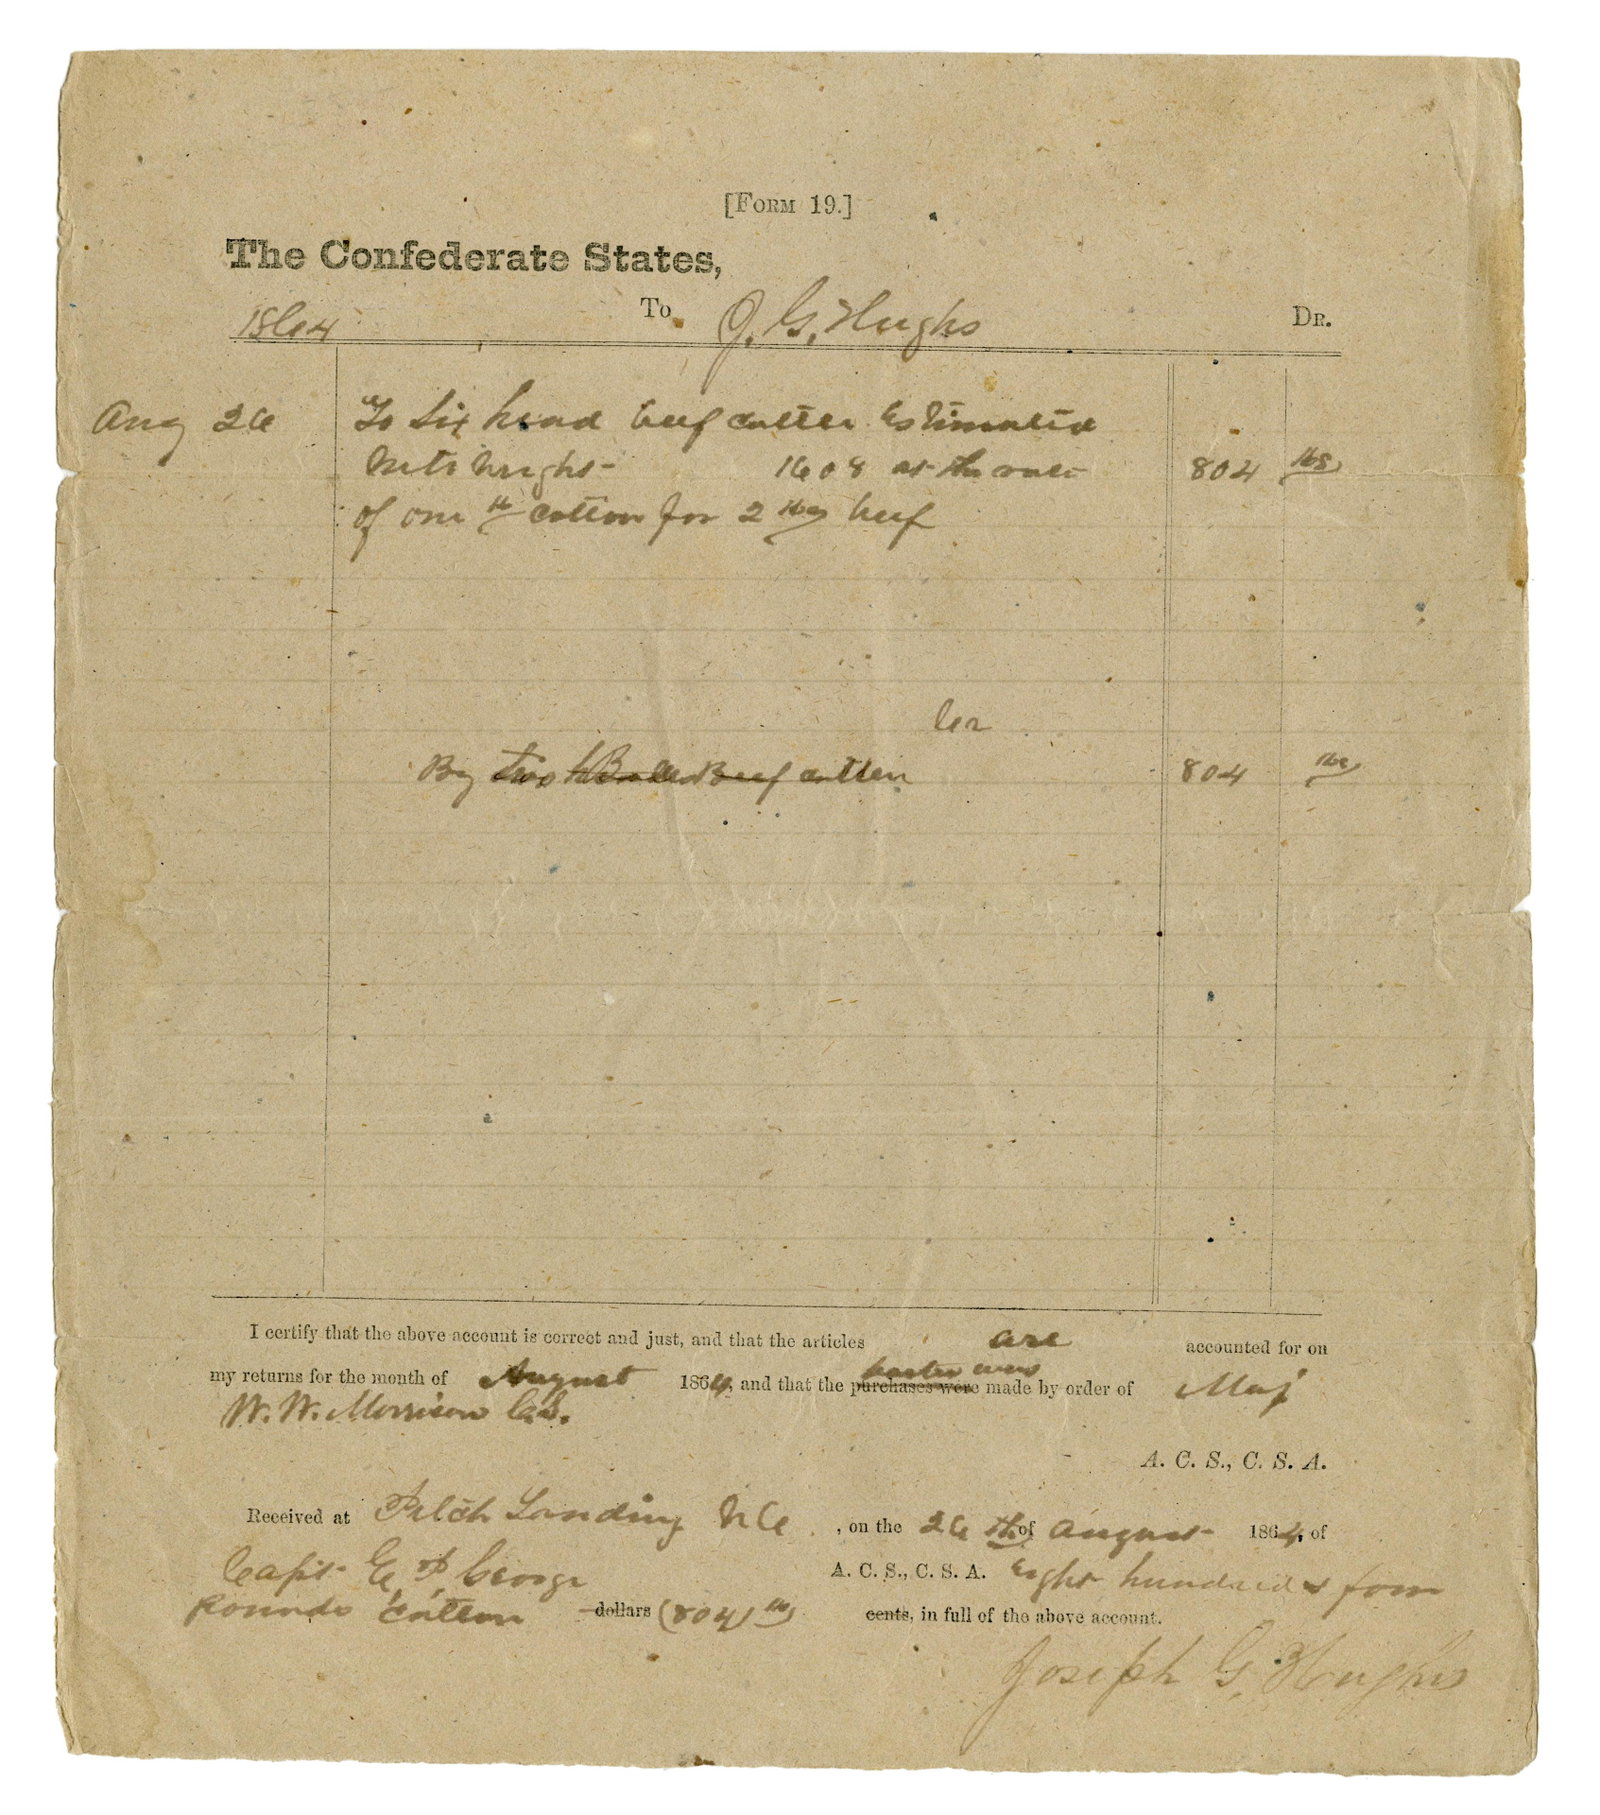 [Form 19.]
The Confederate States,
1864 To J. G. Hughs Dr.
Aug 26 To Six head beef cattle Estimated
Nett Weight 1608 at the rate 804 lbs
of one lb cotton for 2 lbs beef
Cr
By two Bales Beef cotten 804 lbs
I certify that the above account is correct and just, and that the articles are accounted for on
barter were
my returns for the month of August 1864, and that the purchases were made by order of Maj
W. W. Morrison C.S.
A. C. S., C. S. A.
Received at Pitch Landing N C , on the 26 th of August 1864, of
Capt E. P. George A. C. S., C. S. A. Eight hundred & four
Pounds cotton dollars (804) lbs cents, in full of the above account.
Joseph G. Hughs